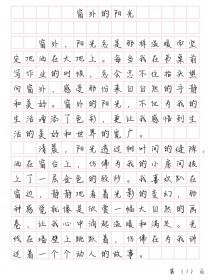 窗外的阳光
窗外,阳光总是那样温暖而坚
定地洒在大地上。每当我在书桌前
写作业的时候,总会忍不住抬头望
向窗外,感受那份来自自然的宁静
和美好。窗外的阳光,不仅为我的
生活增添了色彩,更让我感悟到生
活的美好和世界的宽广。
清晨,阳光透过树叶间的缝隙,
洒在窗台上,仿佛为我的小房间披
上了一层金色的轻纱。我喜欢趴在
窗边,静静地看着光影的变幻,那
种感觉就像是欣赏一幅大自然的画
卷,让我心中涌起温暖和满足。光
线在墙壁上跳跃着,仿佛在为我讲
述着一个个动人的故事。
第(1)页